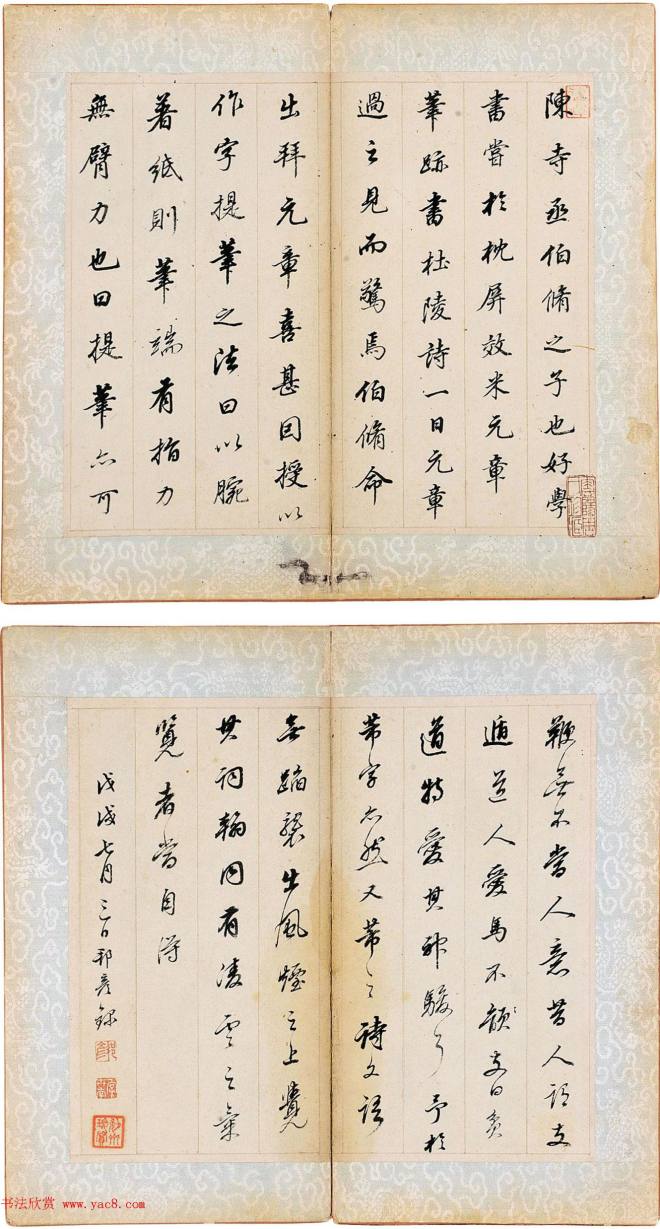 陳寺丞伯脩之子也好學
書嘗於枕屏效米元章
筆跡書杜陵詩一日元章
過之見而驚焉伯脩命
出拜元章喜甚因授以
作字提筆之法曰以腕
著紙則筆端有指力
無臂力也曰提筆亦可
鞭無不當人意昔人謂支
遁道人愛馬不韻支曰貧
道特愛其神駿耳予於
芾字亦然又芾之詩文語
無蹈襲出風煙之上覺
其詞翰同有凌雲之氣
覽者當自得
戊戌七月三日邢彥
书法欣赏 www.yac8.com